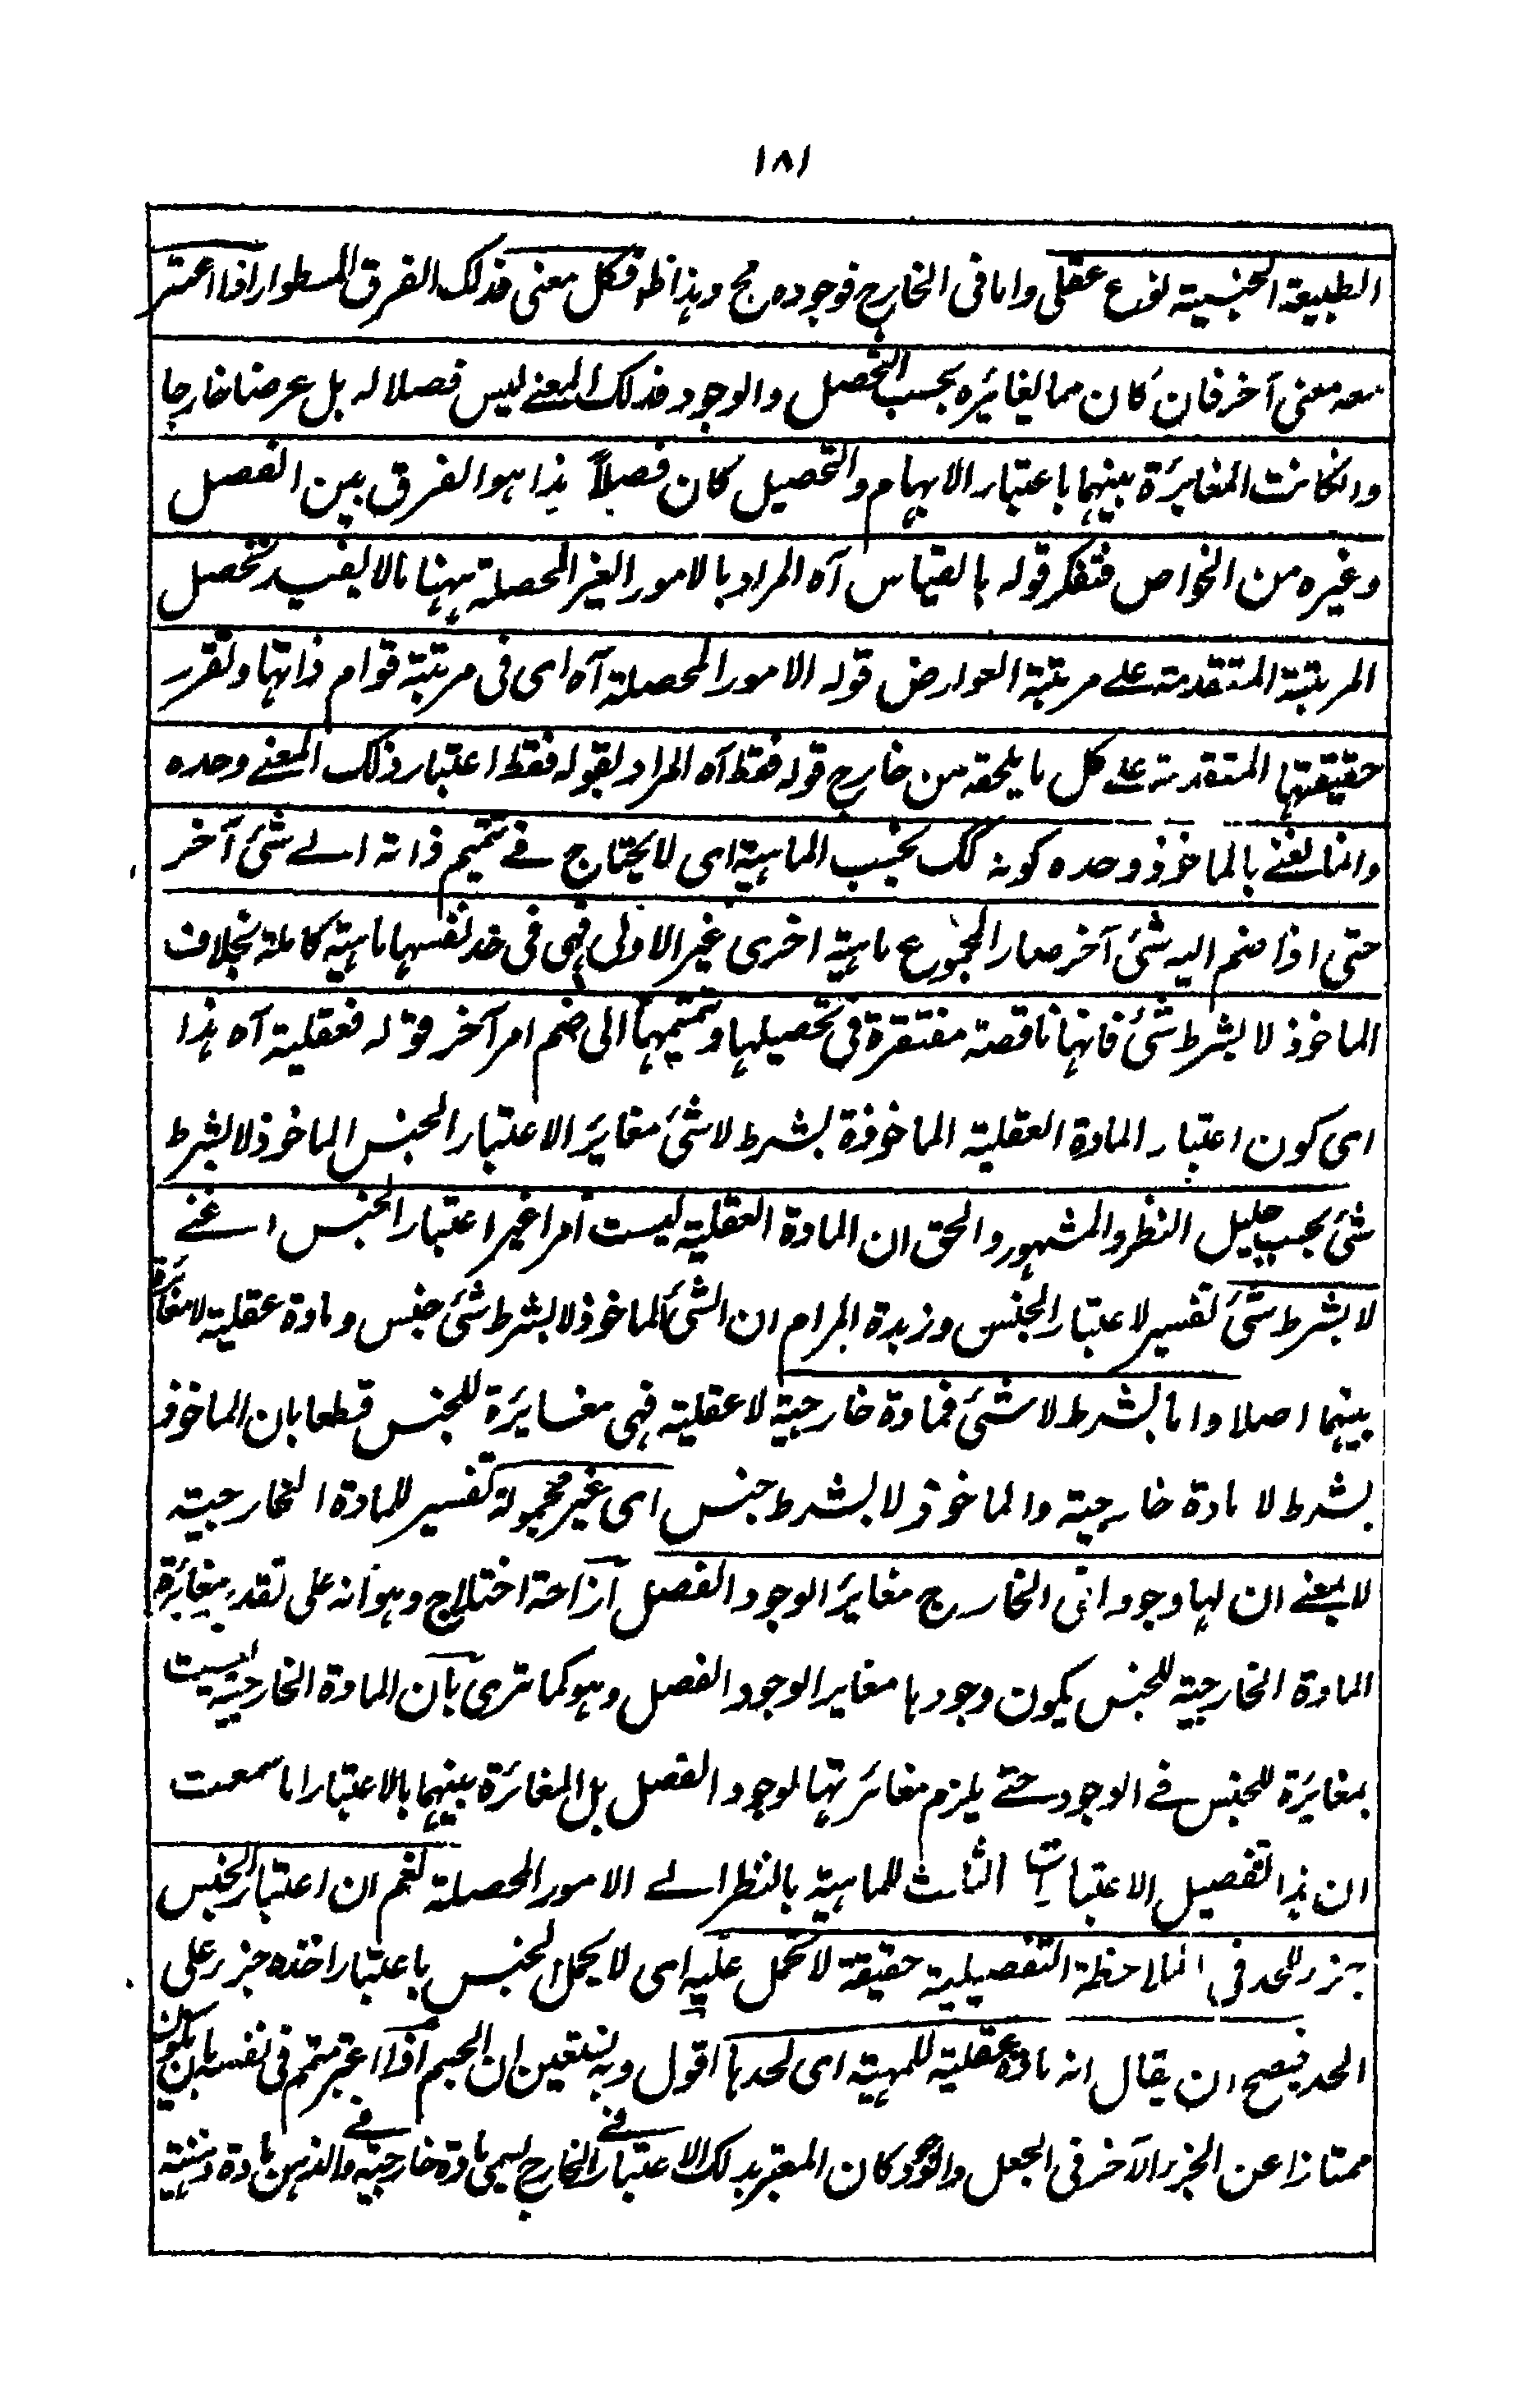 ١٨١
الطبيعة الجنسية نوع عقلى واما فى الخارج فوجوده مح وهذا ظ فكل معنى فذلك الفرق المسطور اذا اعتبر
معه معنى آخر فان كان مما يغايره بحسب التحصل والوجود فذلك المعنے ليس فصلا له بل عرضا خارجا
وانكانت المغايرة بينهما باعتبار الابهام والتحصيل كان فصلاً هذا هو الفرق بين الفصل
وغيره من الخواص فتفكر قوله بالقياس آه المراد بالامور الغير المحصلة ههنا مالا يفيد تحصل
المرتبة المتقدمة علے مرتبة العوارض قوله الامور المحصلة آه اى فى مرتبة قوام ذاتها وتقرر
حقيقتها المتقدمة علے كل ما يلحقه من خارج قوله فقط آه المراد بقوله فقط اعتبار ذلك المعنے وحده
وانما نعنے بالماخوذ وحده كونه كك بحسب الماهية اى لا يحتاج فے تتميم ذاته الے شئ آخر
حتى اذا ضم اليه شئ آخر صار المجموع ماهية اخرى غير الاولى فهى فى حد نفسها ماهية كاملة بخلاف
الماخوذ لا بشرط شئ فانها ناقصة مفتقرة فى تحصيلها وتتميمها الى ضم امر آخر قوله فعقلية آه هذا
اى كون اعتبار المادة العقلية الماخوذة بشرط لا شئ مغايرا لاعتبار الجنس الماخوذ لا بشرط
شئ بحسب جليل النظر والمشهور والحق ان المادة العقلية ليست امرا غير اعتبار الجنس اعنے
لا بشرط شئ تفسير لاعتبار الجنس وزبدة المرام ان الشئ الماخوذ لا بشرط شئ جنس ومادة عقلية لا مغايرة
بينهما اصلا واما بشرط لا شئ فمادة خارجية لا عقلية فهى مغايرة للجنس قطعا بان الماخوذ
بشرط لا مادة خارجية والماخوذ لا بشرط جنس اى غير محمولة تفسير للمادة الخارجية
لا بمعنے ان لها وجودا فى الخارج مغايرا لوجود الفصل ازاحة اختلاج وهو انه على تقدير مغايرة
المادة الخارجية للجنس يكون وجودها مغايرا لوجود الفصل وهو كما ترى بان المادة الخارجية ليست
بمغايرة للجنس فے الوجود حتے يلزم مغائرتها لوجود الفصل بل المغائرة بينهما بالاعتبار اما سمعت
ان هذا تفصيل الاعتبارات الثلث للماهية بالنظر الے الامور المحصلة نعم ان اعتبار الجنس
جزء للحد فى الملاحظة التفصيلية حقيقة لا تحمل عليه اى لا يحمل الجنس باعتبار اخذه جزء على
الحد فيصح ان يقال انه مادة عقلية للمهية اى لحدها اقول وبه نستعين ان الجسم اذا اعتبر متم فى نفسه بان يكون
ممتازا عن الجزء الآخر فى الجعل والوجود كان المعتبر بذلك الاعتبار فے الخارج يسمى مادة خارجية وفے الذهن مادة ذهنية